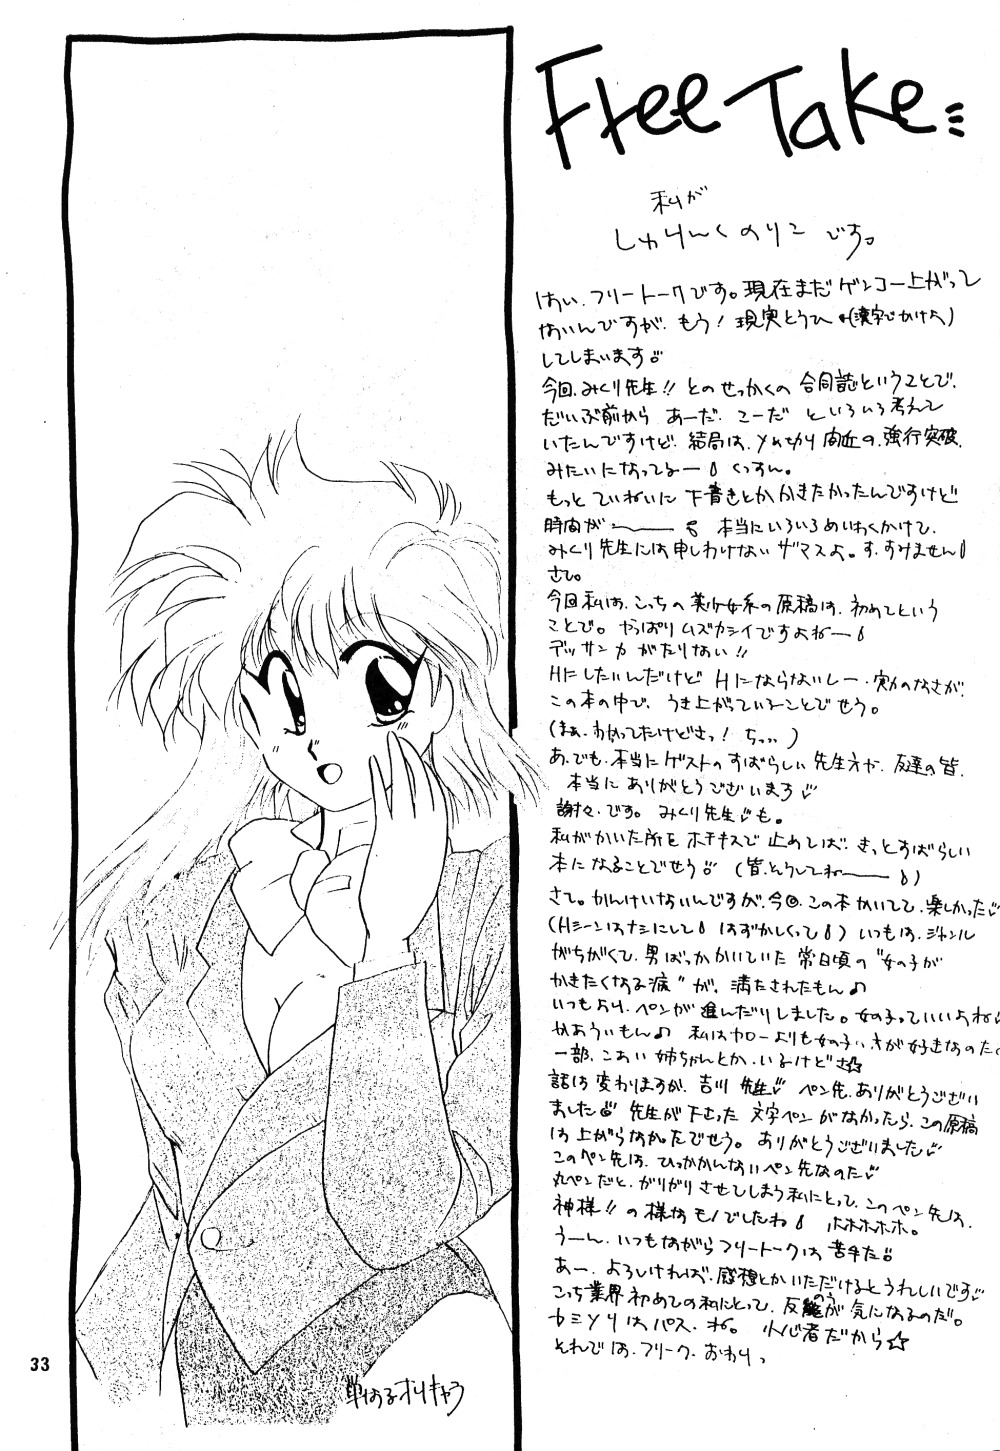 Free Take
私が
しゅりんくのりこ です。
はい、フリートークです。現在まだゲンコー上がって
ないんですが、もう！現実とうひ(漢字でかけよ)
してしまいます
今回、みくり先生!!とのせっかくの合同誌ということで、
だいぶ前から あーだ、こーだ といろいろ考えて
いたんですけど、結局は、〆切り間近の、強行突破、
みたいになってるー くっすん。
もっとていねいに下書きとかかきたかったんですけど
時間が〜 本当にいろいろめいわくかけて、
みくり先生には申しわけないザマスよ。す、すみません
さて。
今回私は、こっちの美少女系の原稿は、初めてという
ことで。やっぱりムズカシイですよねー
デッサン力がたりない!!
Hにしたいんだけど Hにならないしー、実力のなさが、
この本の中で、うき上がっていることでせう。
(まぁ、わかってたけどさっ！ちっ…)
あ、でも、本当にゲストのすばらしい先生方や、友達の皆、
本当にありがとうございます
謝々、です。みくり先生も。
私がかいた所をホチキスで止めてしば、きっとすばらしい
本になることでせう (皆、そうしてねー)
さて。かんけいないんですが、今回、この本かいてて、楽しかった
(Hシーンはナシにして はずかしくって) いつもは、ジャンル
がちがくて、男ばっかかいていた常日頃の"女の子が
かきたくなる病"が、満たされたもん♪
いつもより、ペンが進んだりしました。女の子っていいよねぇ
かぁういもん♪ 私はヤローよりも女の子の方が好きなのだ
一部、こあい姉ちゃんとか、いるけどさ☆
話は変わりますが、吉川先生 ペン先、ありがとうござい
ました 先生が下さった文字ペンがなかったら、この原稿
は上がらなかったでせう。ありがとうございました
このペン先は、ひっかかんないペン先なのだ
丸ペンだと、がりがりさせてしまう私にとって、このペン先は、
神様!!の様なモノでしたわ ホホホホホ。
うーん、いつもながらフリートークは苦手だ
あー、よろしければ、感想とかいただけるとうれしいです
こっち業界初めての私にとって、反応が気になるのだ。
カミソリはパス、ね。小心者だから☆
それでは、フリーク、おわりっ
単なるオリキャラ
33